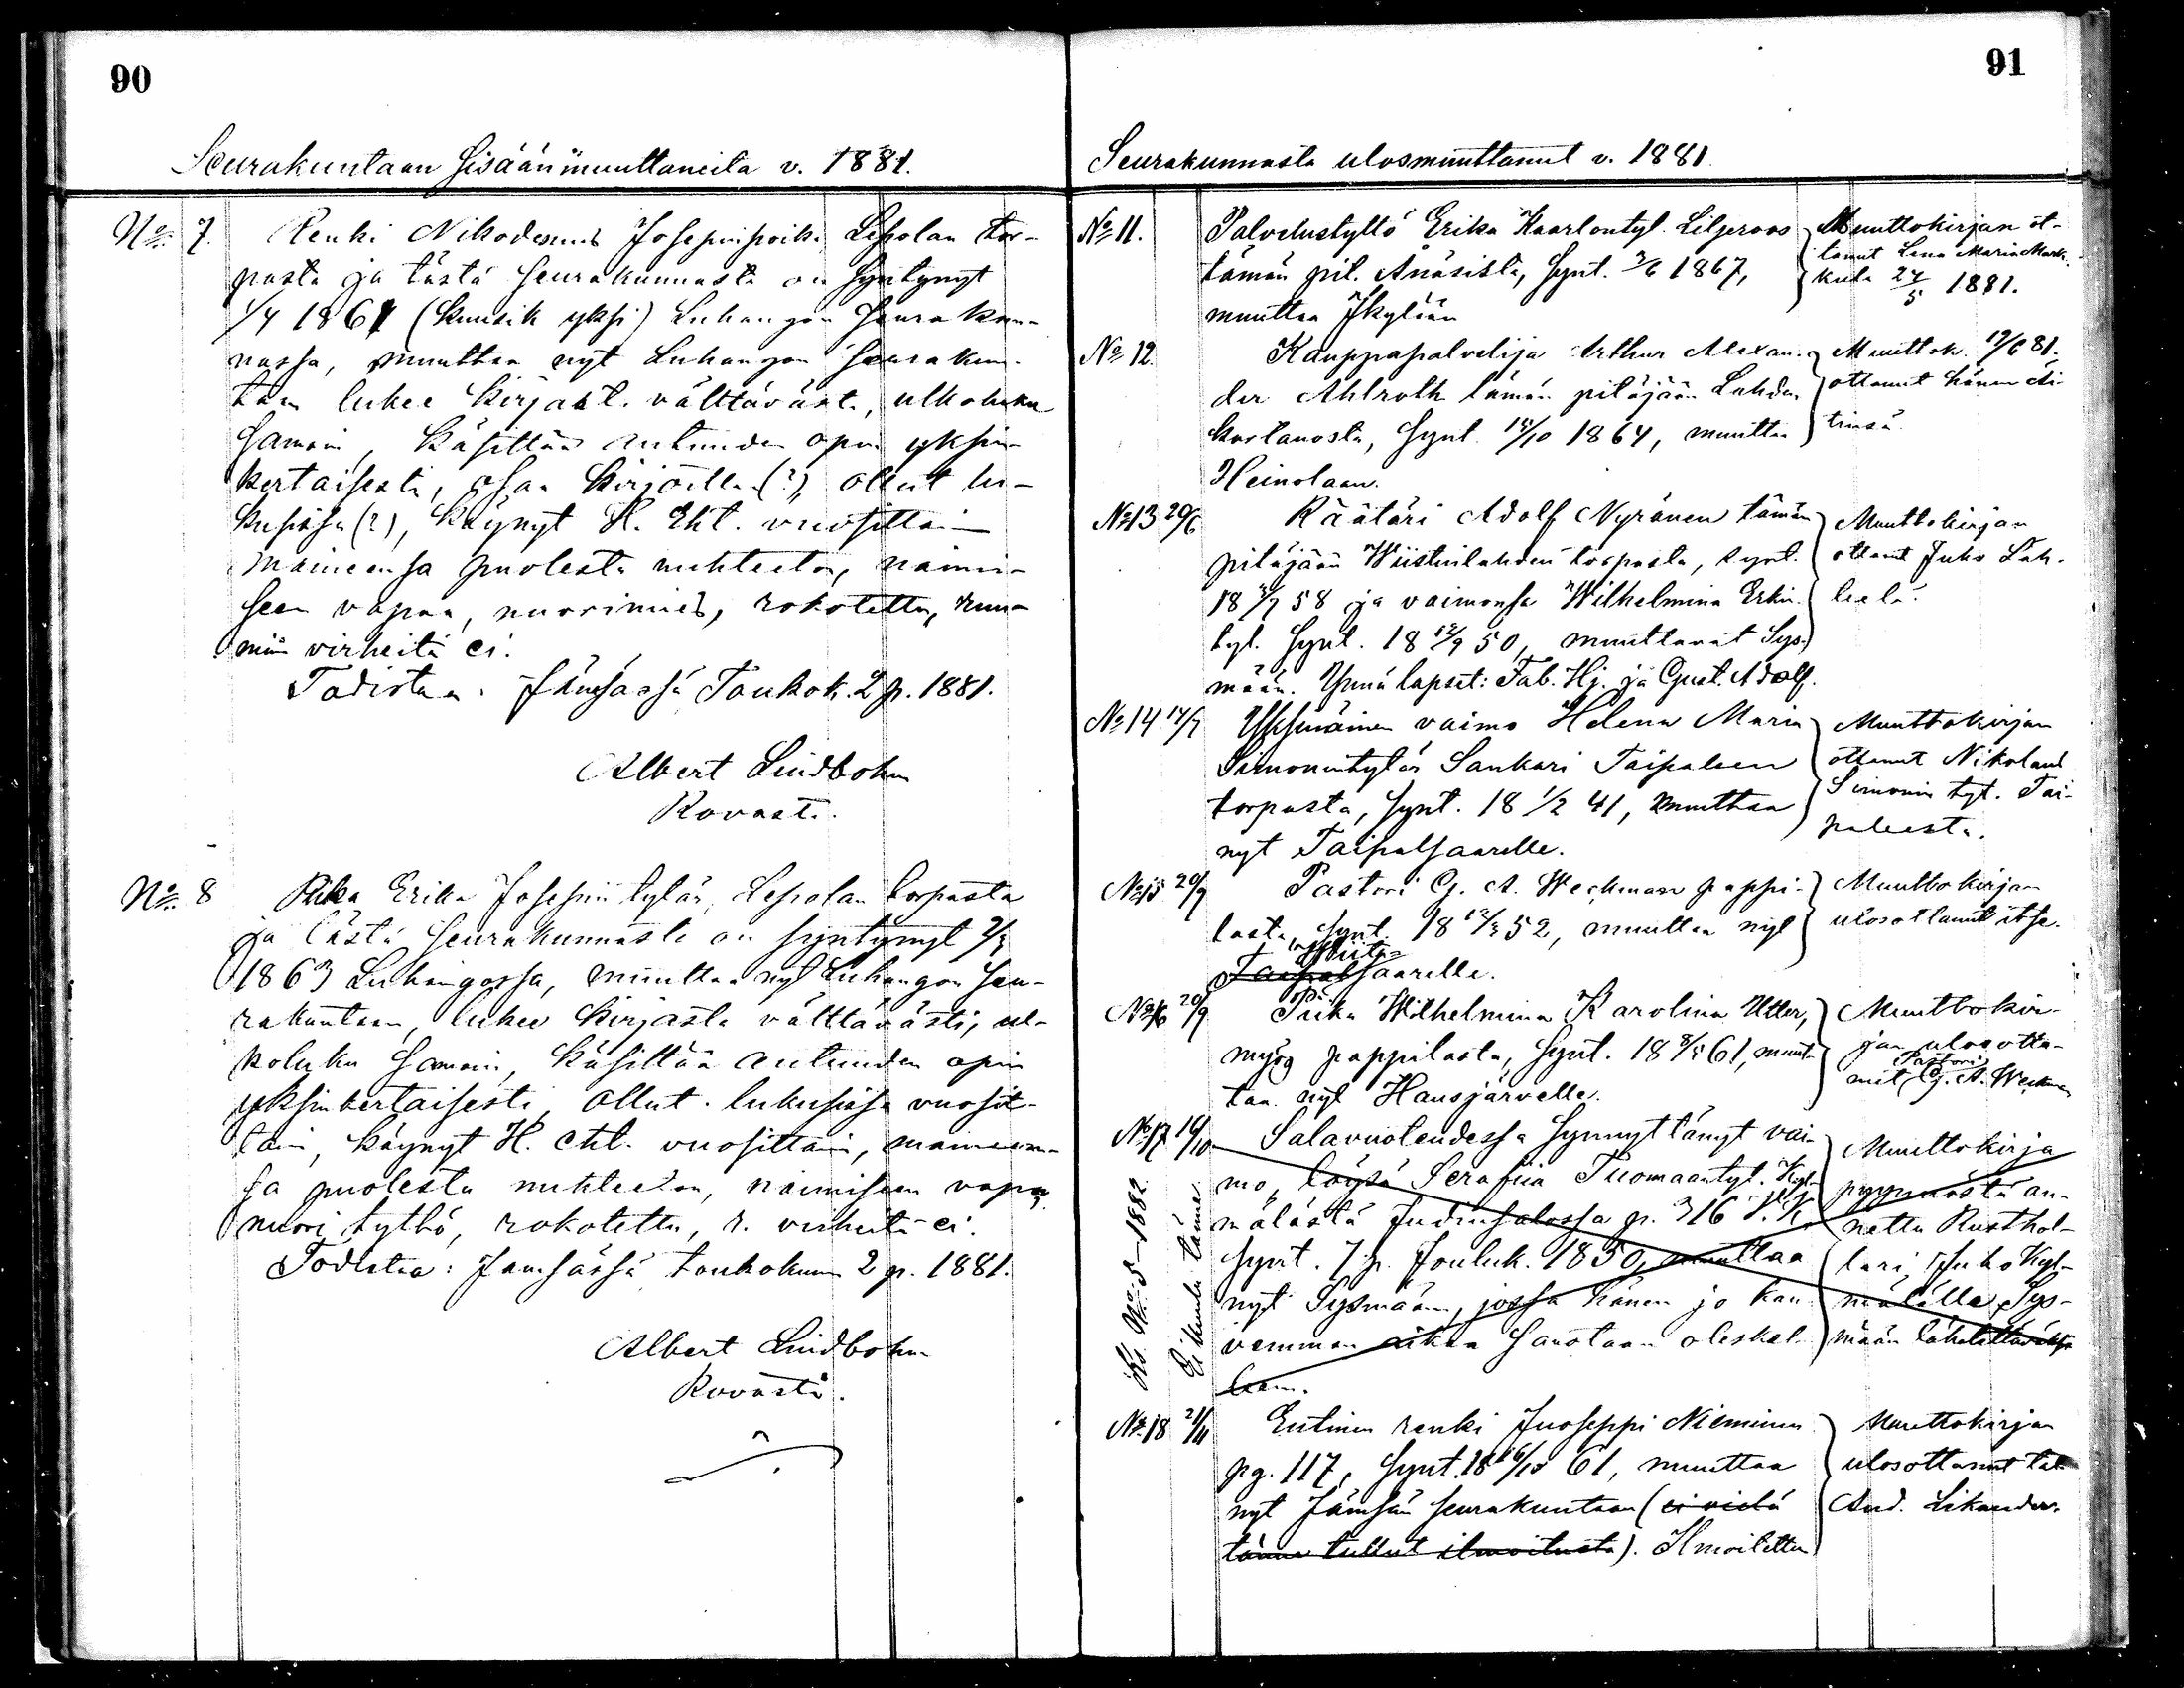 90
Seurakuntaan Sisäänmuuttaneita v. 1881.
No. 7. Renki Nikodemus Josepinpoika Lepolan tor-
pasta ja tästä seurakunnasta on syntynyt
1/4 1861 (kuusik yksi) Luhangon seurakun-
nassa, muuttaa nyt Luhangon seurakun-
taan lukee kirjast. välttäväst., ulkoluku
samoin, käsittää autuuden opin yksin-
kertaisesti, osaa kirjoittaa (?), ollut lu-
kusissa (?), käynyt H. Eht. vuosittain
maineensa puolesta nuhteeton, naimi-
seen vapaa, nuorimies, rokotettu, ruu-
miin virheitä ei.
Todistaa: Jämsässä Toukok. 2 p. 1881.
Albert Lindbohm
Rovasti.
No. 8 Piika Erika Josepin tytär, Lepolan torpasta
ja tästä seurakunnasta on syntynyt 2/3
1863 Luhangossa, muuttaa nyt Luhangon seu-
rakuntaan, lukee kirjasta välttävästi, ul-
koluku samoin, käsittää autuuden opin
yksinkertaisesti, ollut lukusissa vuosit-
tain, käynyt H. eht. vuosittain, maineen-
sa puolesta nuhteeton, naimiseen vapaa,
nuori tyttö, rokotettu, r. virheitä ei.
Todistaa: Jämsässä toukokuun 2 p. 1881.
Albert Lindbohm
Rovasti.
91
Seurakunnasta ulosmuuttanut v. 1881.
No 11. Palvelustyttö Erika Kaarlontyt. Liljeroos
tämän pit. Anäsistä, synt. 3/6 1867,
muuttaa Jkylään
Muuttokirjan ot-
tanut Lena Maria Mark-
kula 24/5 1881.
No 12. Kauppapalvelija Arthur Alexan-
der Ahlroth tämän pitäjään Lahden
kartanosta, synt. 18/10 1864, muuttaa
Heinolaan.
Muuttok. 17/6 81.
ottanut hänen äi-
tinsä.
No 13 20/6 Räätäri Adolf Nyränen tämän
pitäjään Wiistinlahden torpasta, synt.
18 3/7 58 ja vaimonsa Wilhelmina Erkin
tyt. synt. 18 12/9 50, muuttavat Sys-
mään. Ynnä lapset: Fab. Hj. ja Gust. Adolf.
Muuttokirjan
ottanut Juho Läh-
telä.
No 14 14/7 Yksinäinen vaimo Helena Maria
Simonintytär Sankari Taipaleen
torpasta, synt. 18 1/2 41, muuttaa
nyt Taipalsaarelle.
Muuttokirjan
ottanut Nikolaus
Simonin tyt. Tai-
paleesta.
No 15 20/9 Pastori G. A. Weckman pappi-
lasta, synt. 18 12/3 52, muuttaa nyt
Wiita-
Taipalsaarelle.
Muuttokirjan
ulosottanut itse.
No 16 20/9 Piika Wilhelmina Karolina Utter,
myös pappilasta, synt. 18 8/5 61, muut-
taa nyt Hausjärvelle.
Muuttokir-
jan ulosotta-
Pastori
nut G. A. Weckman
No 17 16/10 Salavuoteudessa synnyttänyt vai-
mo, löysä Serafiia Tuomaantyt. Kyl-
mälästä Judinsalossa p. 316
synt. 7 p. Jouluk. 1850, muuttaa
nyt Sysmään, jossa hänen jo kau-
vemman aikaa sanotaan oleskel-
leen.
Muuttokirja
pyynnöstä an-
nettu Rusthol-
lari Juho Kyl-
mälälle Sys-
mään lähetettäväksi
Ks. No. 5 - 1882.
Ei kuulu tänne.
No 18 21/11 Entinen renki Juoseppi Nieminen
pg. 117, synt. 18 16/10 61, muuttaa
nyt Jämsän seurakuntaan (ei vielä
tänne tullut ilmoitusta). Ilmoitettu
Muuttokirjan
ulosottanut tal.
And. Likander.